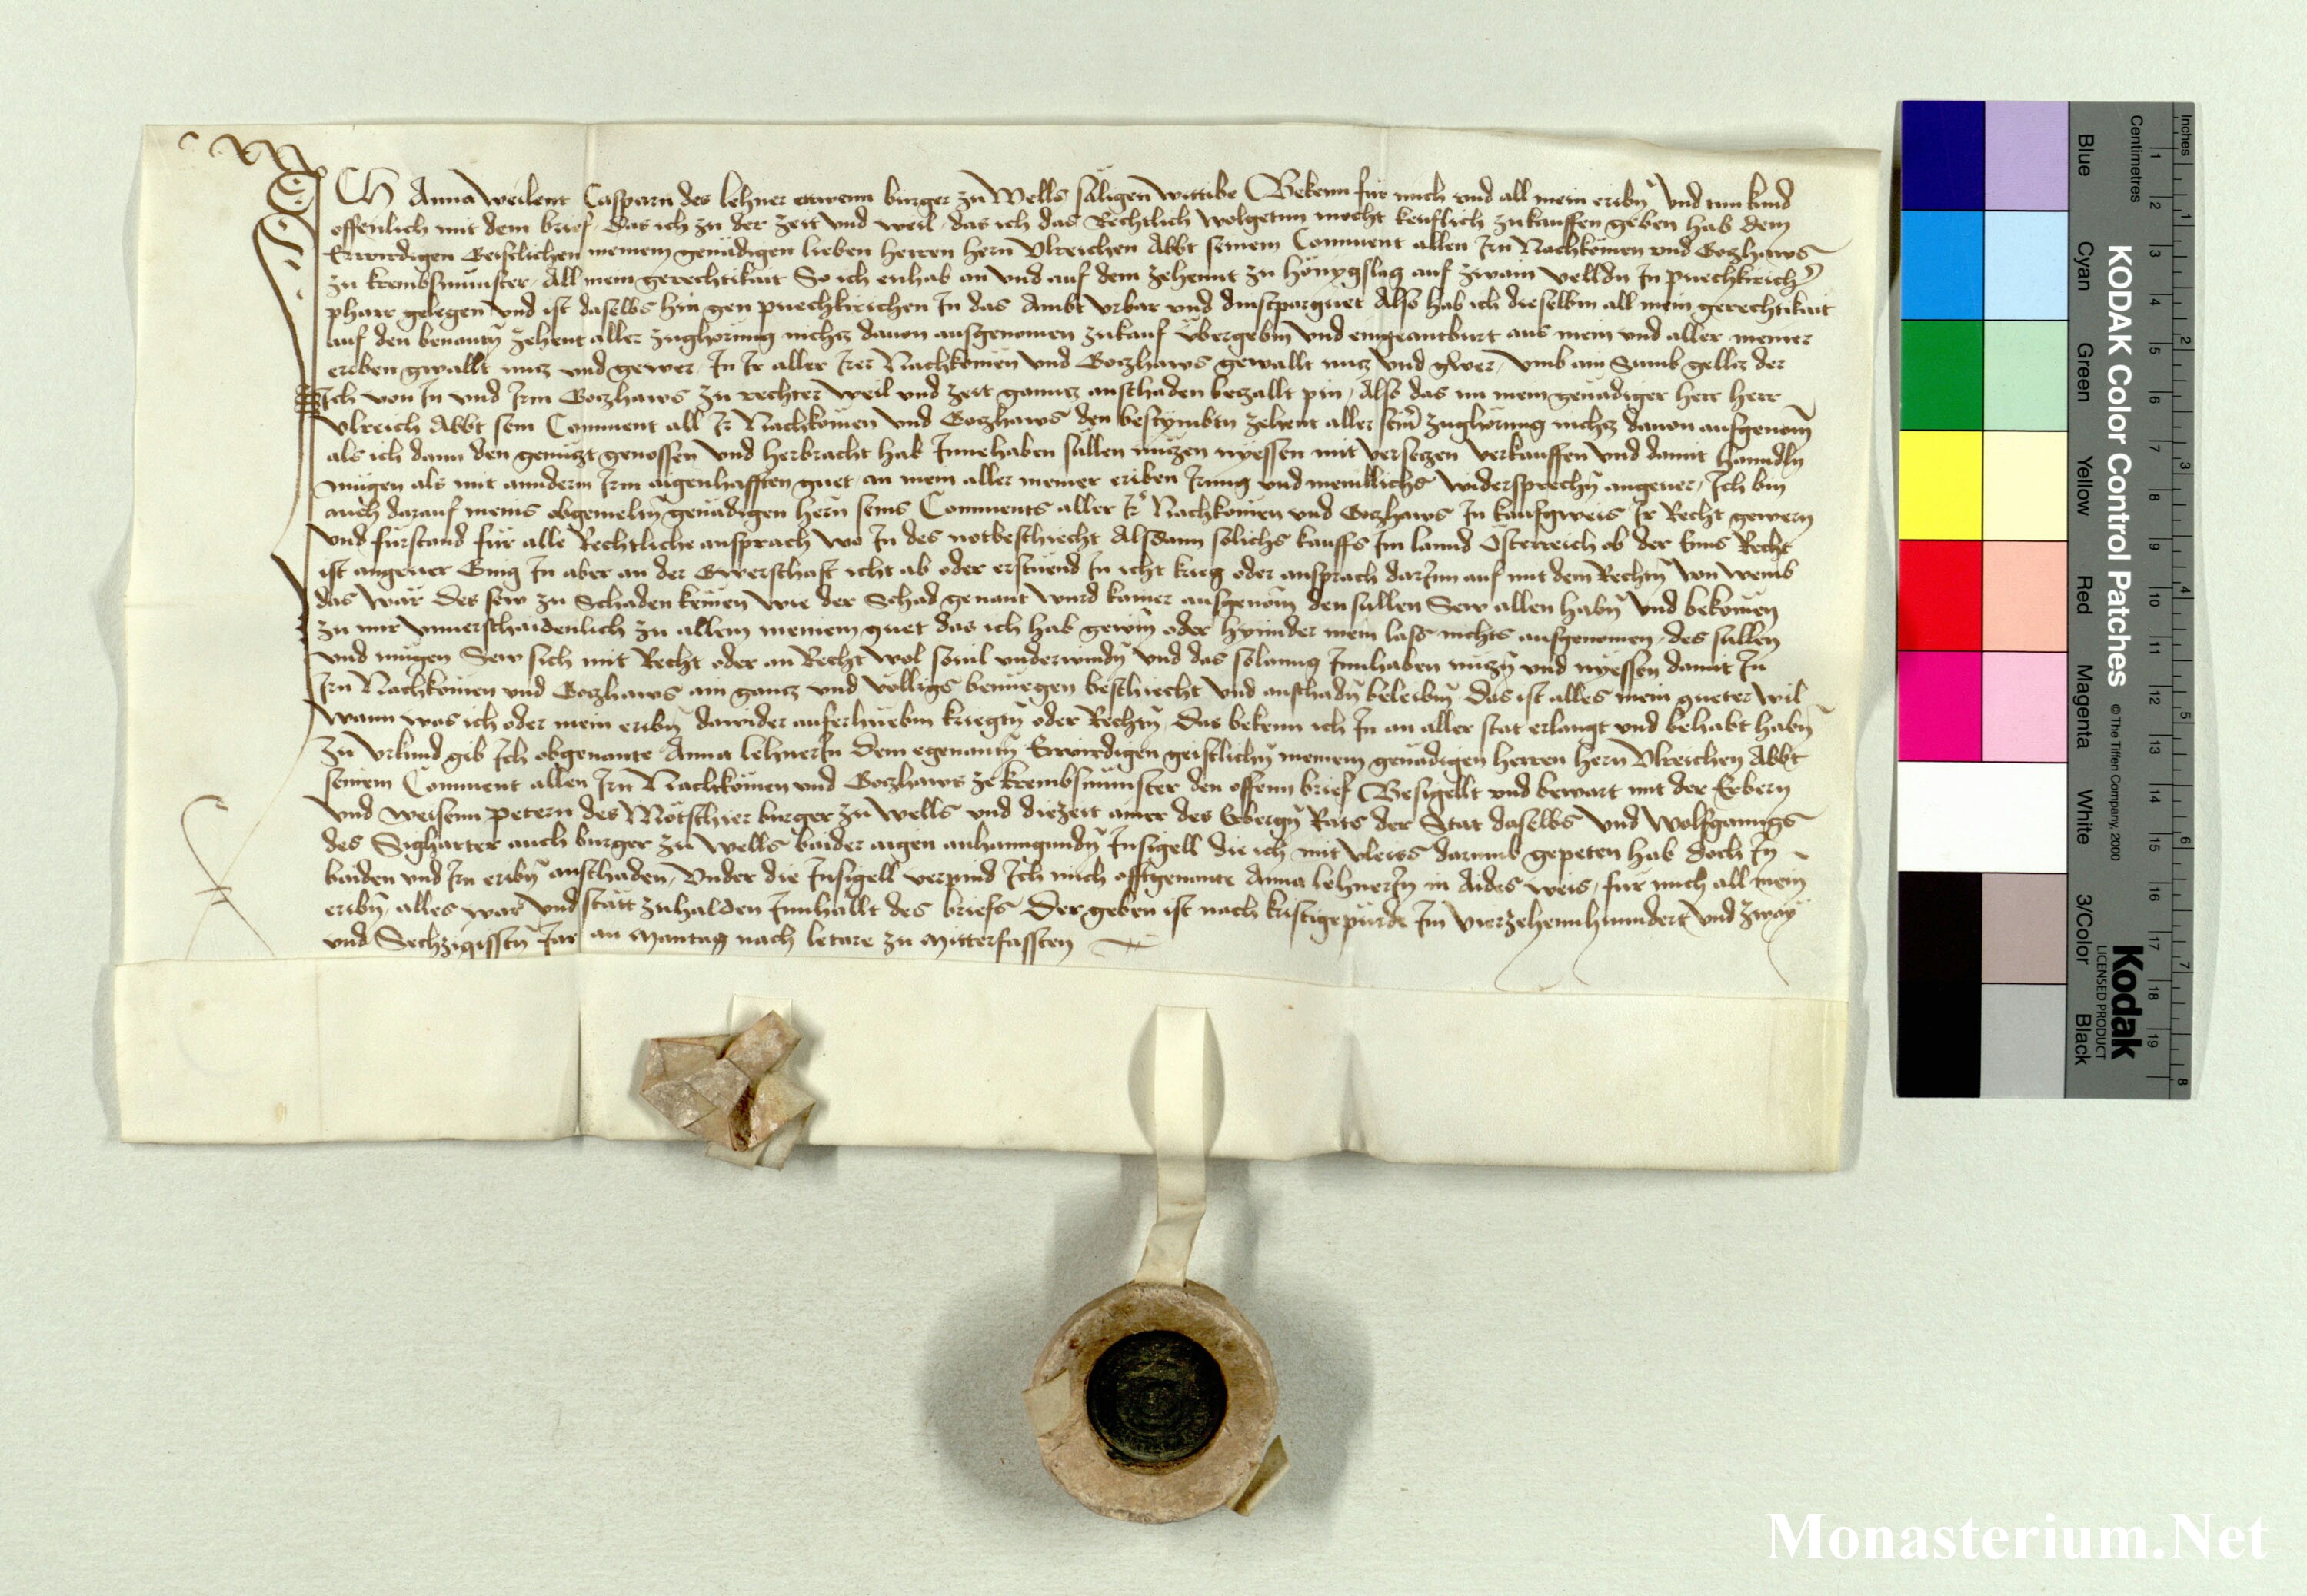 ICH Anna weilent Casparn des lehner ettwenn burger zu Wells säligen wittibe Bekenn für mich vnd all mein eribn̄ vnd tun kund
offenlich mit dem brief das ich zu der zeit vnd weil das ich das Rechtlich wolgetun mocht keuflich zukauffen geben hab dem
Erwirdigen Geistlichen meinem genädigen lieben herren hern Vlreichen Abbt seinem Conuent allen Irn Nachkömen vnd Gotzhaws
zu krembsmünster All mein gerechtikait So ich enhab an vnd auf dem zehennt zu hönygslag auf zwain velldn In puechkirch̄
pharr gelegen vnd ist daselbs hin gen puechkirichen In das Ambt vrbar vnd dinstparguet Also hab ich dieselbm all mein gerechtikait
auf den benantn̄ zehent aller zughorung nichtz dauon ausgenomen zukauf vbergebm̄ vnd eingeantburt aus mein vnd aller meiner
eriben gwallt nutz vnd gewer In Ir aller Irer Nachkömen vnd Gotzhaws gewallt nutz vnd gwer, vmb ain Sumb gelltz der
Ich von In vnd Irm Gotzhaws zu rechter weil vnd zeit ganntz anschaden betzallt pin, Also das nu mein genädiger herr herr
Vlreich Abbt sein Conuent all Ir Nachkömen vnd Gotzhaws den bestymbtn zehent aller seinr̄ zughörung nichtz dauon ausgenom̄
als ich dann den genützt genossen vnd herbracht hab Innehaben sullen nützen nyessen mit versetzen verkauffen vnd damit hanndln
mügen als mit annderm Irm aigenhafften guet an mein aller meiner eriben Irrung vnd meniklichs widersprechn̄ angeuer, Ich bin
auch darauf meins obgemeltn̄ genädigen hern seins Conuents aller Ir Nachkömen vnd Gotzhaws In kaufsweis Ir Recht gewern
vnd fürstand für alle Rechtliche ansprach wo In des notbeschiecht Alsdann solichs kauffs Im lannd Österreich ob der Enns Recht
ist angeuer Gieng In aber an der Gwerschaft icht ab oder erstüend In icht krieg oder ansprach darInn auf mit dem Rechtn̄ von wemb
das wär Des sew zu Schaden kemen wie der Schad genant wurd kainer ausgenom̄ den sullen Sew allen habn̄ vnd bekömen
zu mir vnuerschaidenlich zu allem meinem guet das ich hab gewin̄ oder hynnder mein lass nichts ausgenomen, des sullen
vnd mügen Sew sich mit Recht oder an Recht wol souil vnderwindn̄ vnd das solanng Innhaben nützn̄ vnd nyessen damit In
Irn Nachkömen vnd Gotzhaws ain gantz vnd völligs benüegen beschiecht vnd anschadn̄ beleibm̄ Das ist alles mein gueter wil
wann was ich oder mein eribn̄ dawider auferhuebm kriegtn̄ oder Rechtn̄ Das bekenn ich In an aller stat erlangt vnd behabt habn̄
Zu vrkund gib Ich obgenante Anna lehnerIn Dem egenantn̄ Erwirdigen geistlichn̄ meinem genädigen herren hern Vlreichen Abbt
seinem Conuent allen Irn Nachkömen vnd Gotzhaws ze krembsmünster den offenn brief Besigellt vnd bewart mit der Erbern
vnd weisenn petern des Mötschier burger zu wells vnd diezeit ainer des Erbergn̄ Rats der Stat daselbs vnd wolfganngs
des Sigharter auch burger zu wells baider aigen anhanngundn̄ Insigell die ich mit vleiss darumb gepeten hab doch In
baiden vnd Irn eribn̄ anschaden, Vnder die Insigell verpind Ich mich offtgenante Anna lehnerIn in Aides weis, für mich all mein
eribn̄, alles war vnd stätt zuhalden Innhallt des briefs Der geben ist nach kristigepurde Im vierzehennhunndert vnd zway
vnd Sechzigisstn̄ Iar an Mantag nach letare zu Mitterfassten
KODAK Color Control Patches
© The Tiffen Company, 2000
Kodak
LICENSED PRODUCT
Inches
Centimetres
Blue
Cyan
Green
Yellow
Red
Magenta
White
3/Color
Black
1 2 3 4 5 6 7 8 9 10 11 12 13 14 15 16 17 18 19
1 2 3 4 5 6 7 8
Monasterium.Net